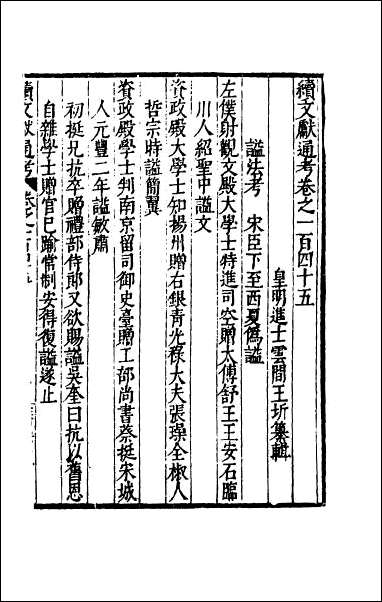 續文獻通考卷之一百四十五
皇明進士雲間王圻纂輯
諡法考 宋臣下至西夏僞諡
左僕射觀文殿大學士特進司空贈太傅舒王王安石臨
川人紹聖中諡文
資政殿大學士知揚州贈右銀青光祿大夫張璪全椒人
哲宗時諡簡翼
資政殿學士判南京留司御史臺贈工部尚書蔡挺宋城
人元豐二年諡敏肅
初挺兄抗卒贈禮部侍郎又欲賜諡吳奎曰抗以舊恩
自雜學士贈官已踰常制安得復諡遂止
續文獻通考